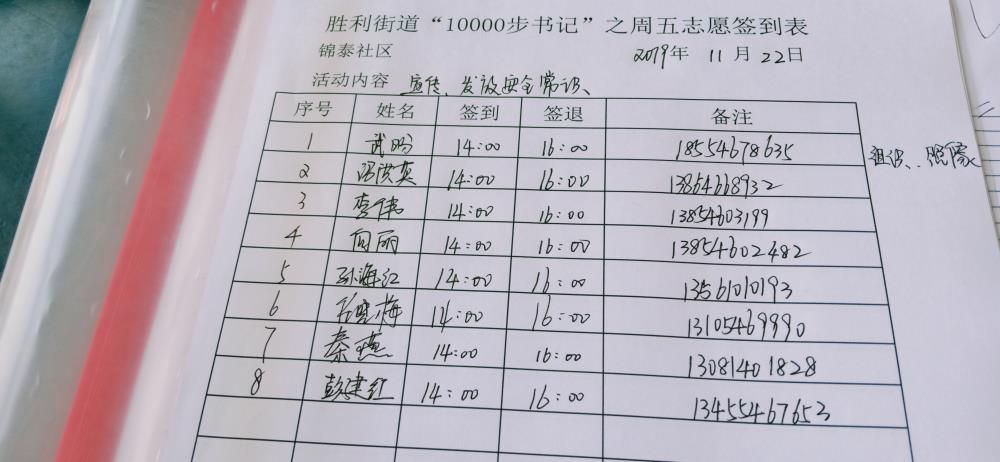 胜利街道“10000步书记”之周五志愿签到表
锦泰社区 2019年 11月22日
活动内容 宣传、发放安全常识、
序号 姓名 签到 签退 备注
1 武 14:00 16:00 18554678635
组织、照像
2 冯洪英 14:00 16:00 13864668932
3 李伟 14:00 16:00 13854603199
4 向丽 14:00 16:00 13854602482
5 孙海红 14:00 16:00 13561010193
6 梅 14:00 16:00 13105469990
7 秦燕 14:00 16:00 13081401828
8 彭建红 14:00 16:00 13455467653